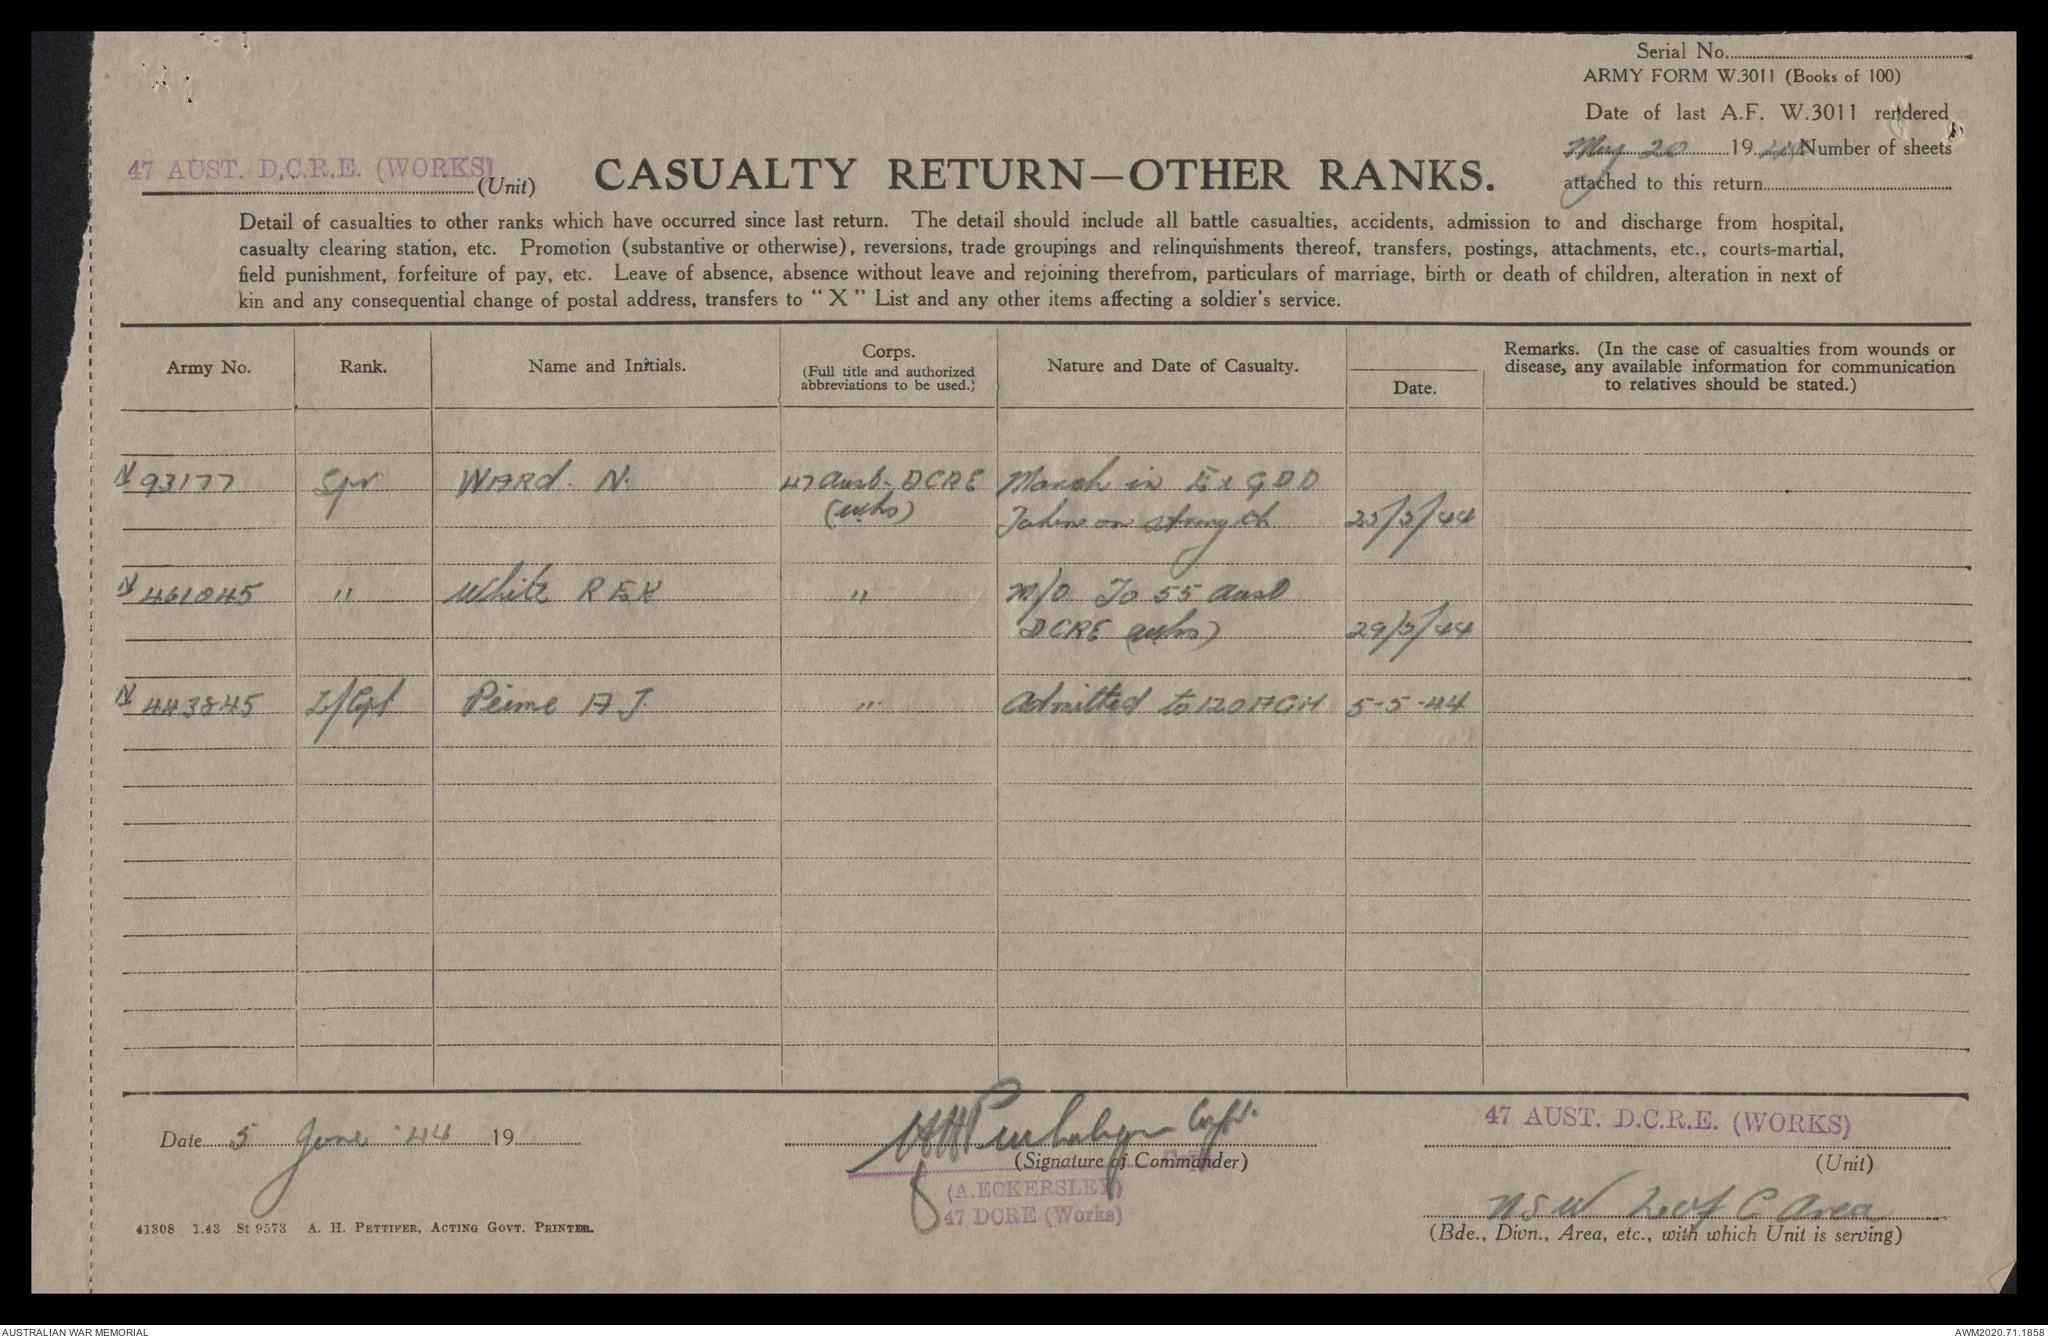 Serial No.
ARMY FORM W.3011 (Books of 100)
Date of last A.F. W.3011 rendered
May 20 1944 Number of sheets
attached to this return
47 AUST. D.C.R.E. (WORKS)
(Unit)
CASUALTY RETURN—OTHER RANKS.
Detail of casualties to other ranks which have occurred since last return. The detail should include all battle casualties, accidents, admission to and discharge from hospital,
casualty clearing station, etc. Promotion (substantive or otherwise), reversions, trade groupings and relinquishments thereof, transfers, postings, attachments, etc., courts-martial,
field punishment, forfeiture of pay, etc. Leave of absence, absence without leave and rejoining therefrom, particulars of marriage, birth or death of children, alteration in next of
kin and any consequential change of postal address, transfers to "X" List and any other items affecting a soldier's service.
Army No.
Rank.
Name and Initials.
Corps.
(Full title and authorized
abbreviations to be used.)
Nature and Date of Casualty.
Date.
Remarks. (In the case of casualties from wounds or
disease, any available information for communication
to relatives should be stated.)
N93177 Spr WARd. N. 47 Aust. DCRE March in Ex GDD
(wks) Taken on strength 25/5/44
N461045 " White REK " M/O To 55 Aust
DCRE (wks) 29/5/44
N443845 L/Cpl A J. " Admitted to 120 AGH 5-5-44
Date 5 June '44 19
Capt.
(Signature of Commander)
(A.ECKERSLEY)
47 DCRE (Works)
47 AUST. D.C.R.E. (WORKS)
(Unit)
NSW L of C Area
(Bde., Divn., Area, etc., with which Unit is serving)
41308 1.43 St 9573 A. H. PETTIFER, ACTING GOVT. PRINTER.
AUSTRALIAN WAR MEMORIAL
AWM2020.71.1858